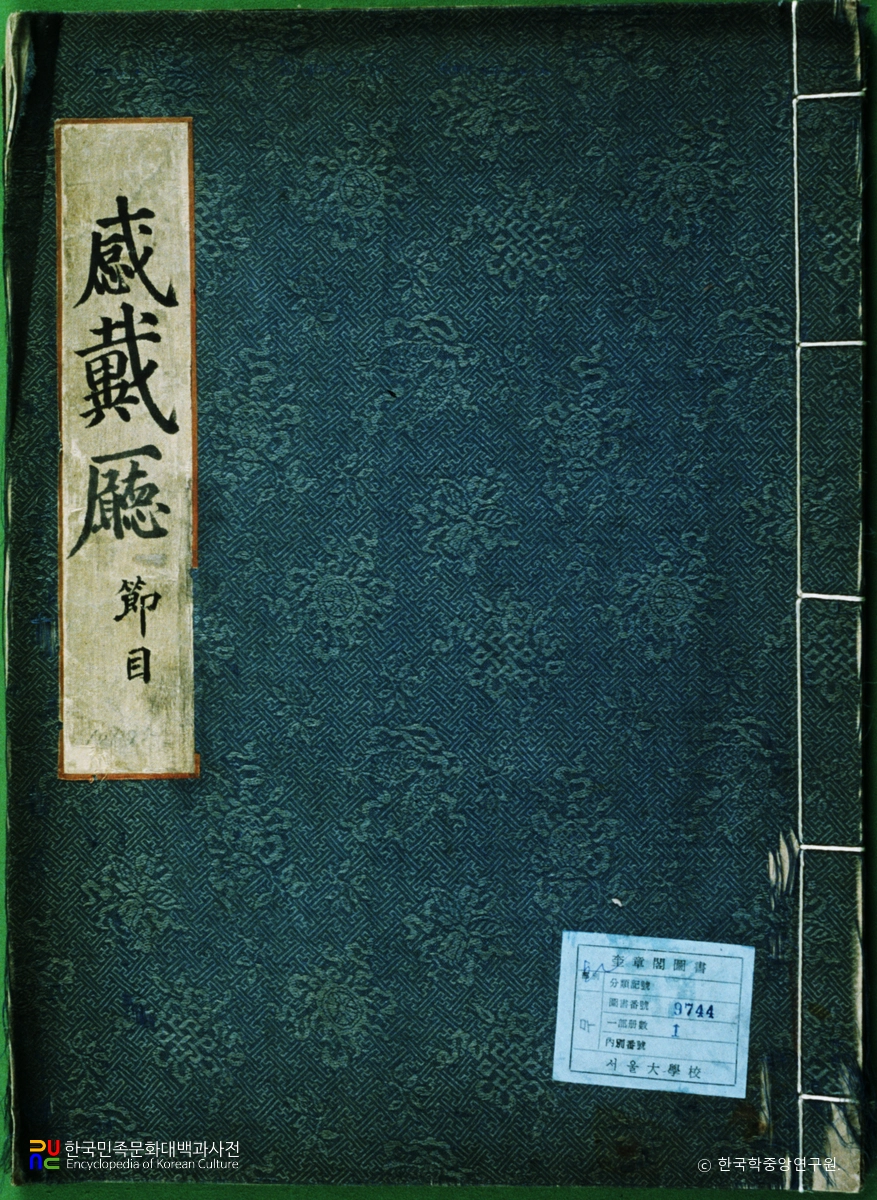 感戴廳
節目
奎章閣圖書
分類記號
圖書番號 9744
一部册數 1
內別番號
서울大學校
한국민족문화대백과사전
Encyclopedia of Korean Culture
© 한국학중앙연구원